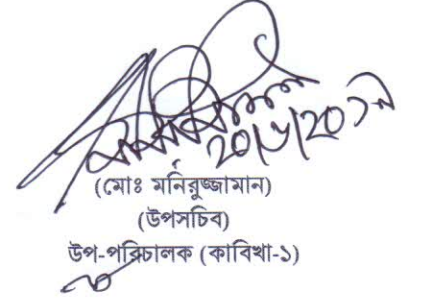 (মোঃ মনিরুজ্জামান)
(উপসচিব)
উপ-পরিচালক (কাবিখা-১)